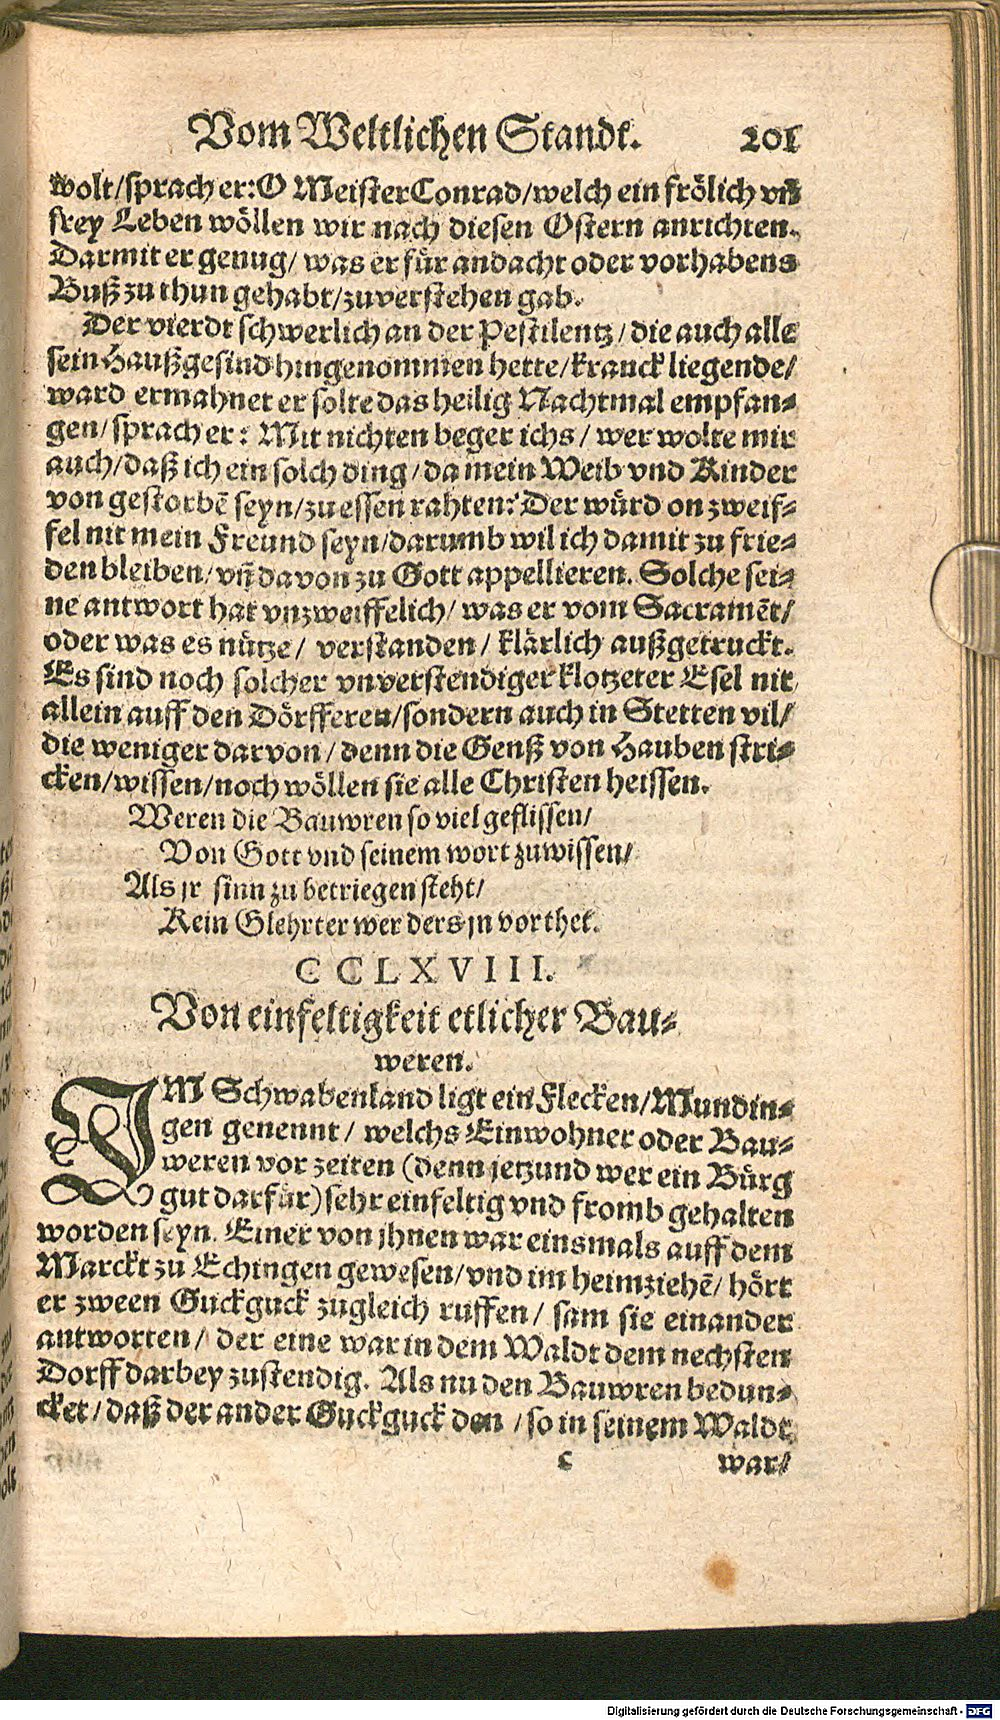 Vom Weltlichen Standt. 201
wolt/sprach er:O Meister Conrad/welch ein frölich vñ
frey Leben wöllen wir nach diesen Ostern anrichten.
Darmit er genug/ was er für andacht oder vorhabens
Buß zu thun gehabt/zuverstehen gab.
Der vierdt schwerlich an der Pestilentz/die auch alle
sein Haußgesind hingenommen hette/kranck liegende/
ward ermahnet er solte das heilig Nachtmal empfan⸗
gen/sprach er: Mit nichten beger ichs/ wer wolte mir
auch/daß ich ein solch ding/da mein Weib vnd Kinder
von gestorbē seyn/zu essen rahten: Der würd on zweif⸗
fel nit mein Freund seyn/darumb wil ich damit zu frie⸗
den bleiben/vñ davon zu Gott appellieren. Solche sei⸗
ne antwort hat vnzweiffelich/ was er vom Sacramēt/
oder was es nütze/ verstanden/ klärlich außgetruckt.
Es sind noch solcher vnverstendiger klotzeter Esel nit
allein auff den Dörfferen/sondern auch in Stetten vil/
die weniger darvon/denn die Genß von Hauben stri⸗
cken/wissen/noch wöllen sie alle Christen heissen.
Weren die Bauwren so viel geflissen/
Von Gott vnd seinem wort zuwissen/
Als jr sinn zu betriegen steht/
Kein Glehrter wer ders jn vorthet.
CCLXVIII.
Von einfeltigkeit etlicher Bau⸗
weren.
IM Schwabenland ligt ein Flecken/Mundin⸗
gen genennt/ welchs Einwohner oder Bau⸗
weren vor zeiten (denn jetzund wer ein Bürg
gut darfür)sehr einfeltig vnd fromb gehalten
worden seyn. Einer von ihnen war einsmals auff dem
Marckt zu Echingen gewesen/vnd im heimziehē/ hört
er zween Guckguck zugleich ruffen/ sam sie einander
antworten/ der eine war in dem Waldt dem nechsten
Dorff darbey zustendig. Als nu den Bauwren bedun⸗
cket/daß der ander Guckguck den /so in seinem Waldt
c war/
Digitalisierung gefördert durch die Deutsche Forschungsgemeinschaft - DFG